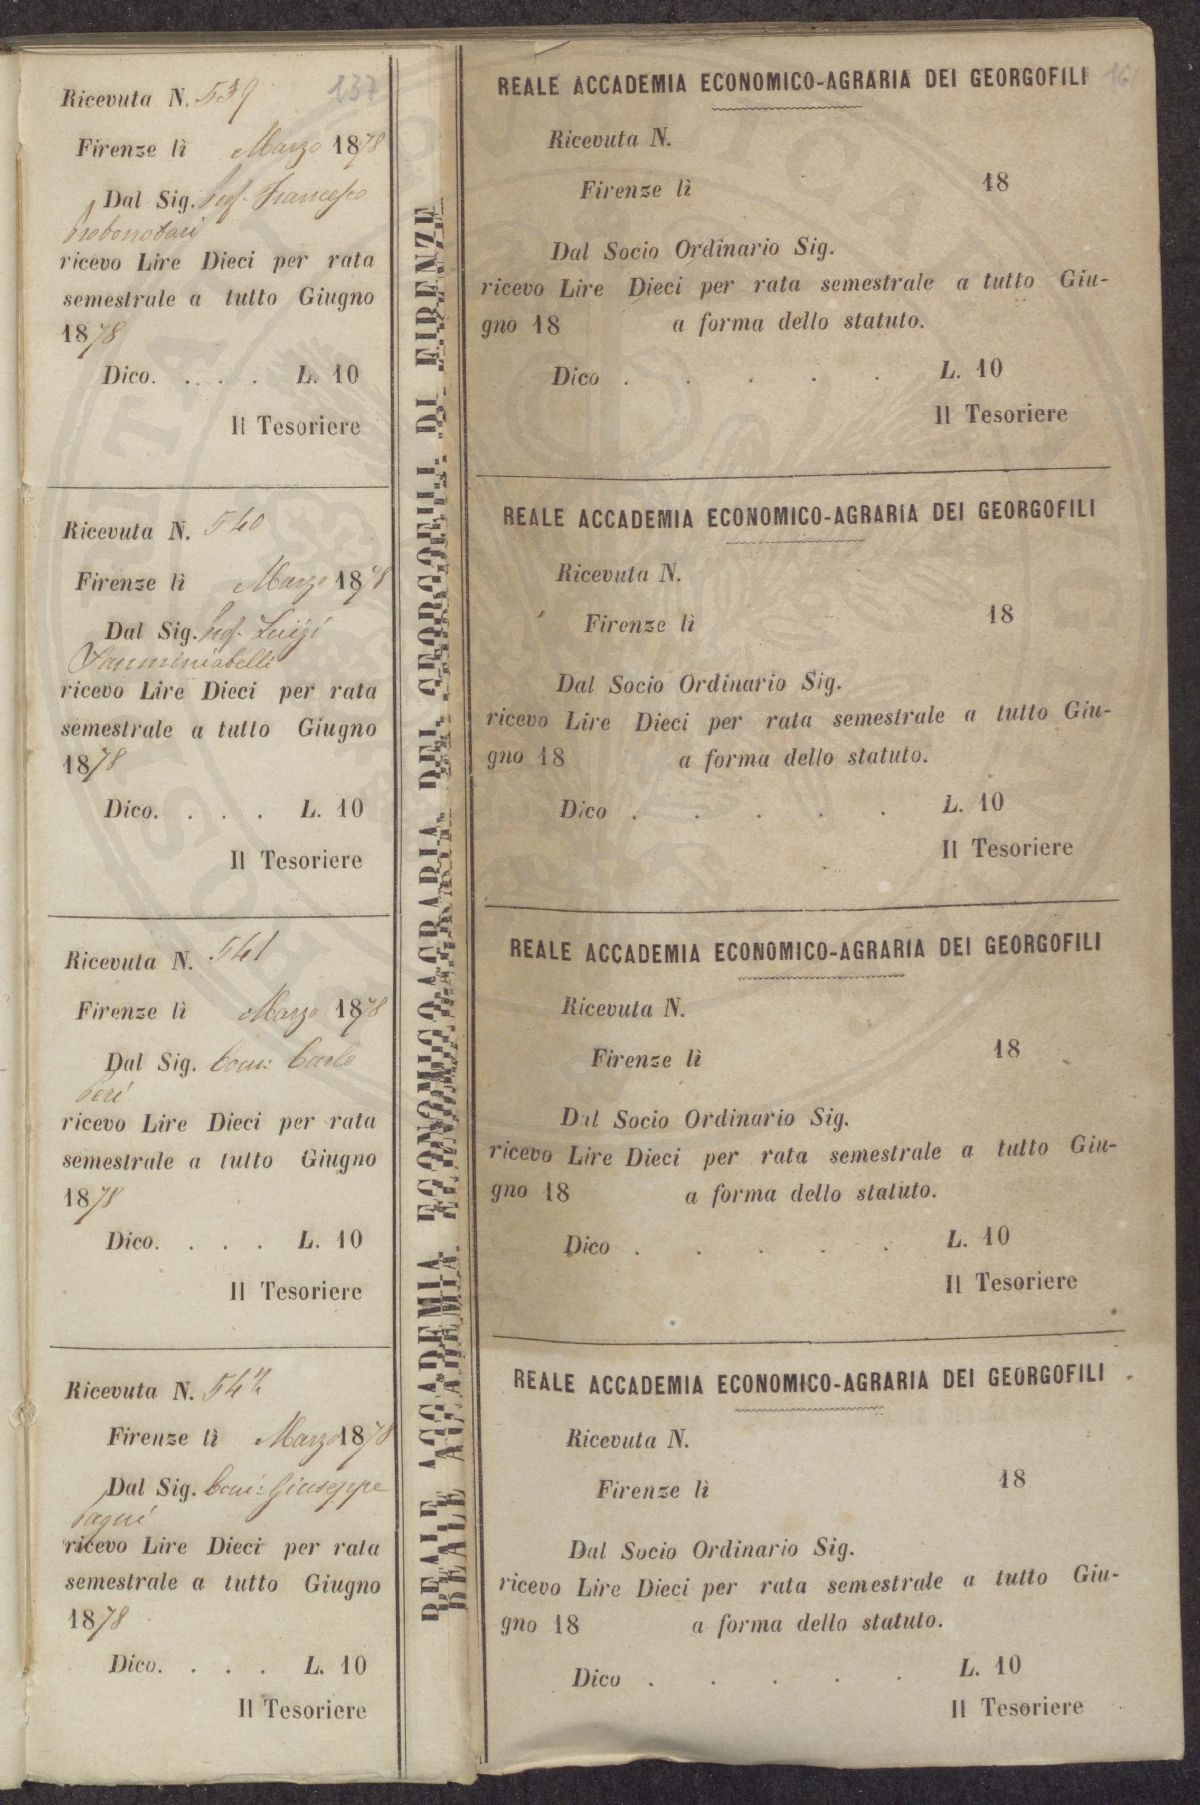 Ricevuta N. 539
137
Firenze lì Marzo 1878
Dal Sig. Prof. Francesco
Protonotari
ricevo Lire Dieci per rata
semestrale a tutto Giugno
1878
Dico. . . . . L. 10
Il Tesoriere
Ricevuta N. 540
Firenze lì Marzo 1878
Dal Sig. Prof. Luigi
Sanminiatelli
ricevo Lire Dieci per rata
semestrale a tutto Giugno
1878
Dico. . . . L. 10
Il Tesoriere
Ricevuta N. 541
Firenze lì Marzo 1878
Dal Sig. Com: Carlo
Peri
ricevo Lire Dieci per rata
semestrale a tutto Giugno
1878
Dico. . . . L. 10
Il Tesoriere
Ricevuta N. 542
Firenze lì Marzo 1878
Dal Sig. Com: Giuseppe
ricevo Lire Dieci per rata
semestrale a tutto Giugno
1878
Dico. . . . L. 10
Il Tesoriere
REALE ACCADEMIA ECONOMICO-AGRARIA DEI GEORGOFILI DI FIRENZE
REALE ACCADEMIA
REALE ACCADEMIA ECONOMICO-AGRARIA DEI GEORGOFILI
Ricevuta N.
Firenze lì 18
Dal Socio Ordinario Sig.
ricevo Lire Dieci per rata semestrale a tutto Giu-
gno 18 a forma dello statuto.
Dico . . . . . L. 10
Il Tesoriere
REALE ACCADEMIA ECONOMICO-AGRARIA DEI GEORGOFILI
Ricevuta N.
Firenze lì 18
Dal Socio Ordinario Sig.
ricevo Lire Dieci per rata semestrale a tutto Giu-
gno 18 a forma dello statuto.
Dico . . . . . L. 10
Il Tesoriere
REALE ACCADEMIA ECONOMICO-AGRARIA DEI GEORGOFILI
Ricevuta N.
Firenze lì 18
Dal Socio Ordinario Sig.
ricevo Lire Dieci per rata semestrale a tutto Giu-
gno 18 a forma dello statuto.
Dico . . . . . L. 10
Il Tesoriere
REALE ACCADEMIA ECONOMICO-AGRARIA DEI GEORGOFILI
Ricevuta N.
Firenze lì 18
Dal Socio Ordinario Sig.
ricevo Lire Dieci per rata semestrale a tutto Giu-
gno 18 a forma dello statuto.
Dico . . . . . L. 10
Il Tesoriere